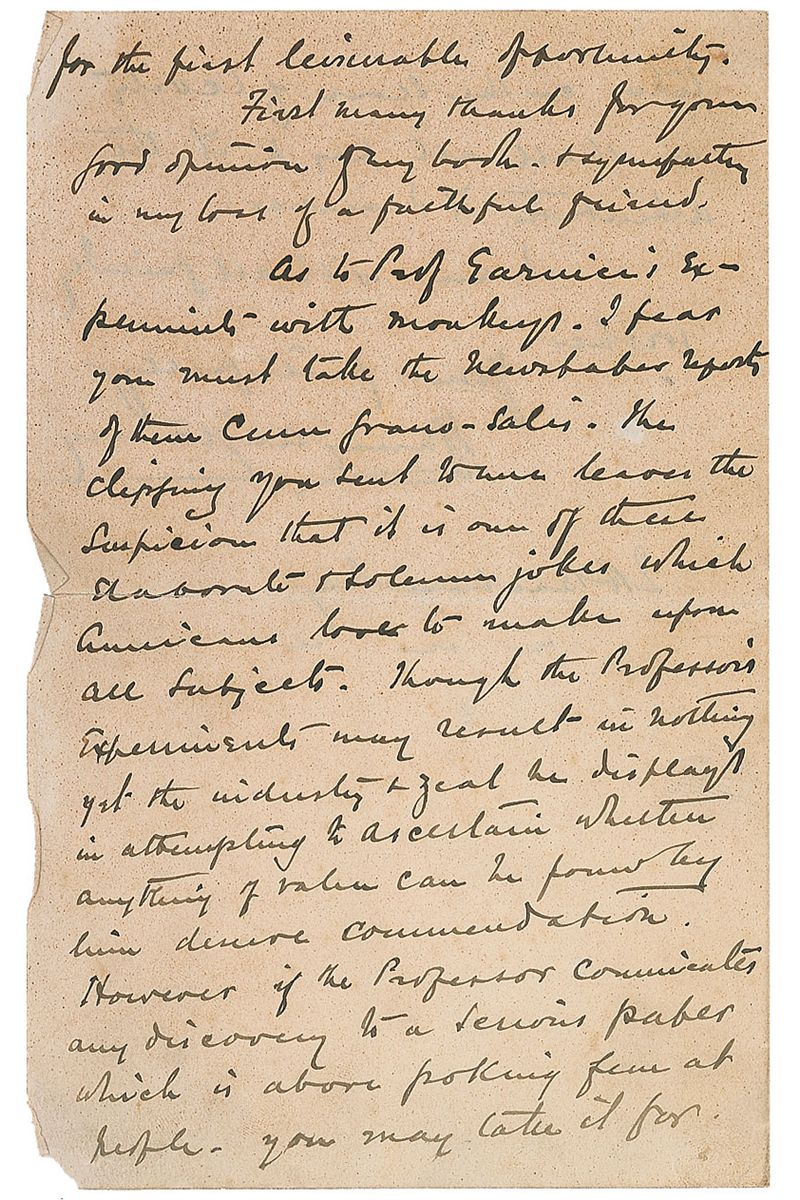 for the first leisurable opportunity.
First many thanks for your
good opinion of my book - & sympathy
in my loss of a faithful friend.
As to Prof Garnier's Ex-
periments with monkeys. I fear
you must take the newspaper reports
of them Cum grano-Salis. The
clipping you sent to me leaves the
suspicion that it is one of these
elaborate & solemn jokes which
Americans love to make upon
all subjects. Though the Professors
Experiments may result in nothing
yet the industry & zeal he displays
in attempting to ascertain whether
anything of value can be found by
him deserve commendation.
However if the Professor comunicates
any discovery to a serious paper
which is above poking fun at
people - you may take it for